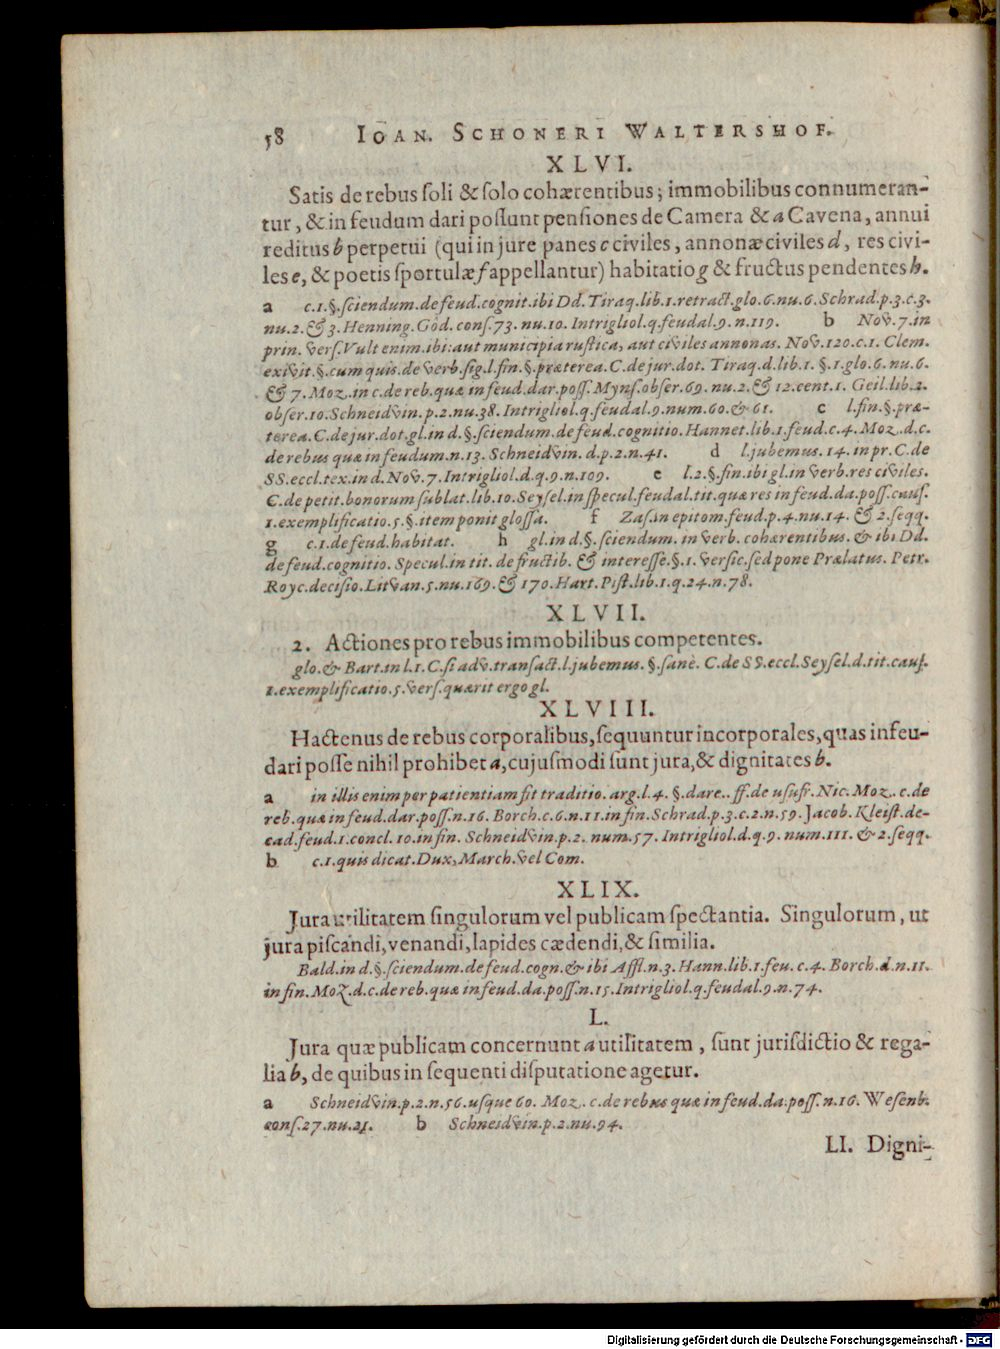 58 IOAN. SCHONERI WALTERSHOF.
XLVI.
Satis de rebus soli & solo cohærentibus; immobilibus connumeran-
tur, & in feudum dari possunt pensiones de Camera & a Cavena, annui
reditus b perpetui (qui in jure panes c civiles, annonæ civiles d, res civi-
les e, & poetis sportulæ f appellantur) habitatio g & fructus pendentes h.
a c.1.§.sciendum.de feud.cognit.ibi Dd. Tiraq.lib.1.retract.glo.6.nu.6.Schrad.p.3.c.3.
nu.2.& 3.Henning.Göd.cons.73.nu.10.Intrigliol.q.feudal.9.n.119. b Nov.7.in
prin.vers.Vult enim.ibi:aut municipia rustica, aut civiles annonas. Nov.120.c.1. Clem.
exivit.§.cum quis.de verb.sig.l.fin.§.præterea.C.de jur.dot. Tiraq.d.lib.1.§.1.glo.6.nu.6.
& 7. Moz.in c.de reb.quæ in feud.dar.poss.Myns.obser.69.nu.2.& 12.cent.1. Geil.lib.2.
obser.10.Schneidvin.p.2.nu.38.Intrigliol.q.feudal.9.num.60.& 61. c l.fin.§.præ-
terea.C.de jur.dot.gl.in d.§.sciendum.de feud.cognitio.Hannet.lib.1.feud.c.4.Moz.d.c.
de rebus quæ in feudum.n.13.Schneidvin.d.p.2.n.41. d l.jubemus.14.in pr.C.de
SS.eccl.tex.in d.Nov.7.Intrigliol.d.q.9.n.109. e l.2.§.fin.ibi gl.in verb.res civiles.
C.de petit.bonorum sublat.lib.10.Seysel.in specul.feudal.tit.quæ res in feud.da.poss.caus.
1.exemplificatio.5.§.item ponit glossa. f Zas.in epitom.feud.p.4.nu.14.& 2.seqq.
g c.1.de feud.habitat. h gl.in d.§.sciendum.in verb.cohærentibus.& ibi Dd.
de feud.cognitio.Specul.in tit.de fructib.& interesse.§.1.versic.sed pone Prælatus. Petr.
Royc.decisio.Litvan.5.nu.169.& 170.Hart.Pist.lib.1.q.24.n.78.
XLVII.
2. Actiones pro rebus immobilibus competentes.
glo.& Bart.in l.1.C.si adv.transact.l.jubemus.§.sanè. C.de SS.eccl.Seysel.d.tit.caus.
1.exemplificatio.5.vers.quærit ergo gl.
XLVIII.
Hactenus de rebus corporalibus, sequuntur incorporales, quas infeu-
dari posse nihil prohibet a, cujusmodi sunt jura, & dignitates b.
a in illis enim per patientiam fit traditio. arg.l.4.§.dare..ff.de usufr.Nic.Moz.c.de
reb.quæ in feud.dar.poss.n.16.Borch.c.6.n.11.in fin.Schrad.p.3.c.2.n.59.Jacob.Kleist.de-
cad.feud.1.concl.10.in fin.Schneidvin.p.2.num.57.Intrigliol.d.q.9.num.111.& 2.seqq.
b c.1.quis dicat.Dux, March.vel Com.
XLIX.
Jura utilitatem singulorum vel publicam spectantia. Singulorum, ut
jura piscandi, venandi, lapides cædendi, & similia.
Bald.in d.§.sciendum.de feud.cogn.& ibi Affl.n.3.Hann.lib.1.feu.c.4.Borch.d.n.11.
in fin.Moz.d.c.de reb.quæ in feud.da.poss.n.15.Intrigliol.q.feudal.9.n.74.
L.
Jura quæ publicam concernunt a utilitatem, sunt jurisdictio & rega-
lia b, de quibus in sequenti disputatione agetur.
a Schneidvin.p.2.n.56.usque 60. Moz.c.de rebus quæ in feud.da.poss.n.16. Wesenb.
cons.27.nu.21. b Schneidvin.p.2.nu.94.
LI. Digni-
Digitalisierung gefördert durch die Deutsche Forschungsgemeinschaft - DFG